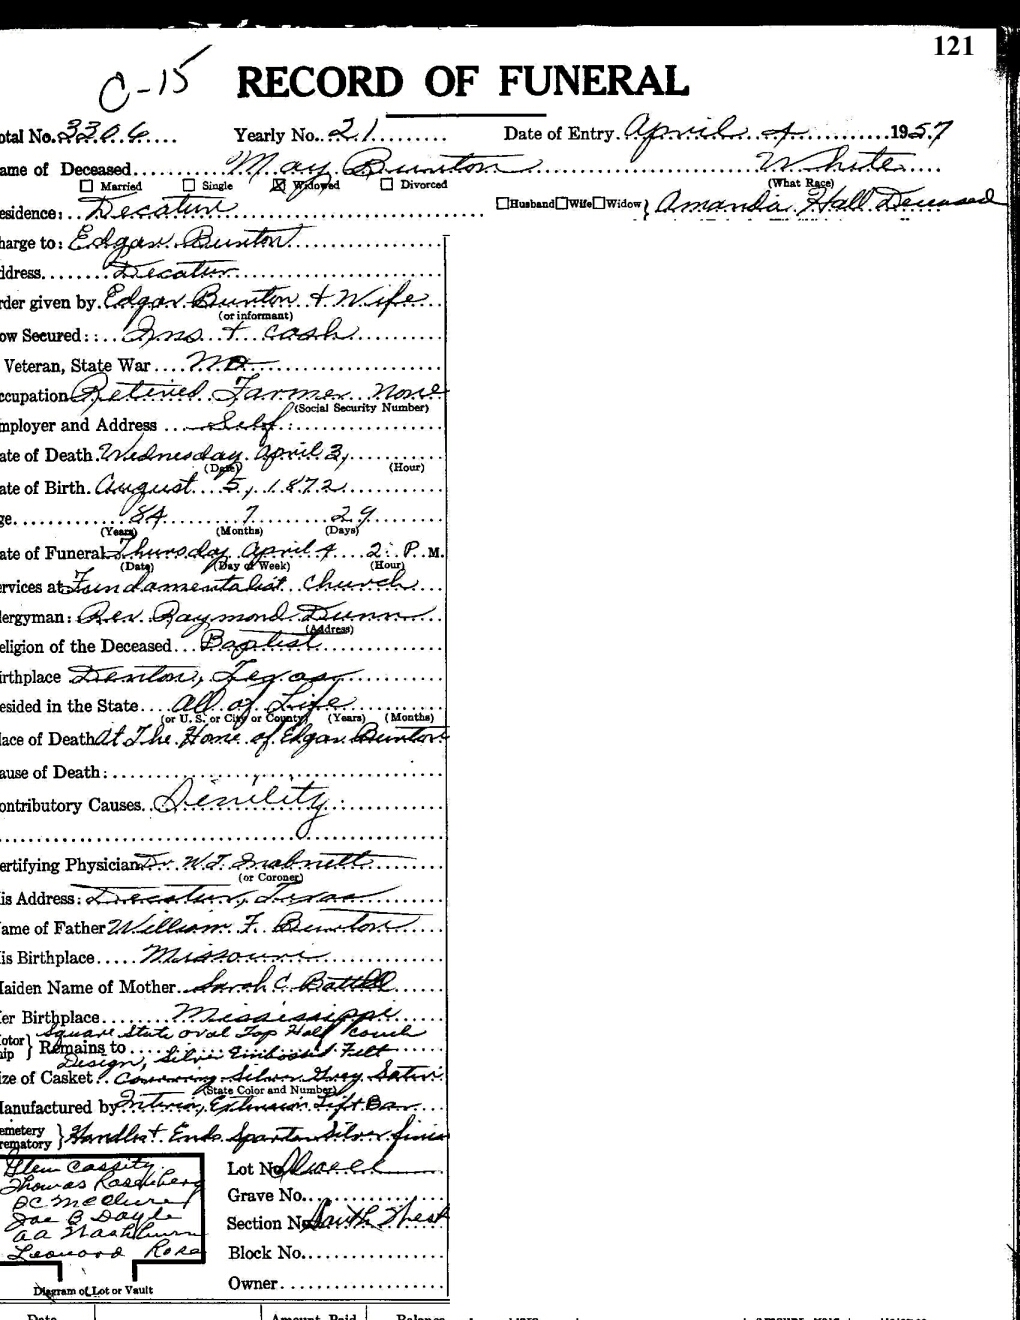 121
C-15
RECORD OF FUNERAL
otal No. 3306 Yearly No. 21 Date of Entry April 4 1957
ame of Deceased May Bunton White
☐ Married ☐ Single ☒ Widowed ☐ Divorced (What Race)
esidence: Decatur ☐Husband☐Wife☐Widow} Amanda Hall Deceased
harge to: Edgar Bunton
ddress Decatur
rder given by Edgar Bunton + Wife
(or informant)
ow Secured: Ins + cash
Veteran, State War No
ccupation Retired Farmer None
(Social Security Number)
mployer and Address Self
ate of Death Wednesday April 3,
(Date) (Hour)
ate of Birth August 5, 1872
ge 84 7 29
(Years) (Months) (Days)
ate of Funeral Thursday April 4 2: P. M.
(Date) (Day of Week) (Hour)
ervices at Fundamentalist Church
lergyman: Rev. Raymond Dunn
(Address)
eligion of the Deceased Baptist
irthplace Denton, Texas
esided in the State All of Life
(or U. S. or City or County) (Years) (Months)
lace of Death At The Home of Edgar Bunton
ause of Death:
ontributory Causes Sinility
ertifying Physician Dr. W.T.
(or Coroner)
is Address: Decatur, Texas
ame of Father William F. Bunton
is Birthplace Missouri
aiden Name of Mother Sarah C.
er Birthplace Mississippi
Square State oval Top Half
otor
hip } Remains to
Design, Silver Embossed Felt
ize of Casket Covering Silver Grey Satin
(State Color and Number)
anufactured by Interior, Extension Lift Bar
emetery
rematory } Handles + Ends Spartan Silver finis
Glen Cassity
Thomas
OC McClure
Joe B Dayle
AA Washburn
Leonard Rose
Lot No.
Grave No.
Section No. South West
Block No.
Owner
Diagram of Lot or Vault
Date Amount Paid Balance